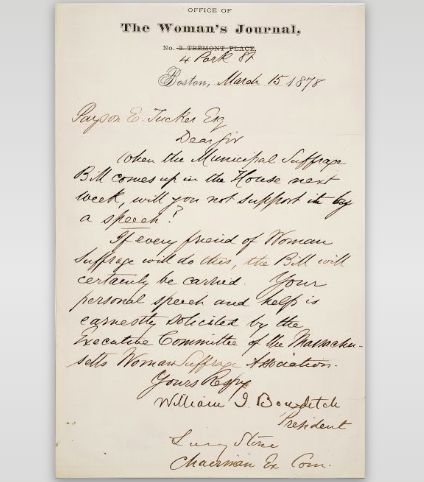 OFFICE OF
The Woman's Journal,
No. 3 TREMONT PLACE,
4 Park St
Boston, March 15 1878
Payson E. Tucker Esq
Dear Sir
When the Municipal Suffrage
Bill comes up in the House next
week, will you not support it by
a speech?
If every friend of Woman
Suffrage will do this, the Bill will
certainly be carried. Your
personal speech and help is
earnestly solicited by the
Executive Committee of the Massachu-
setts Woman Suffrage Association.
Yours Respy
William I. Bowditch
President
Lucy Stone
Chairman Ex Com.